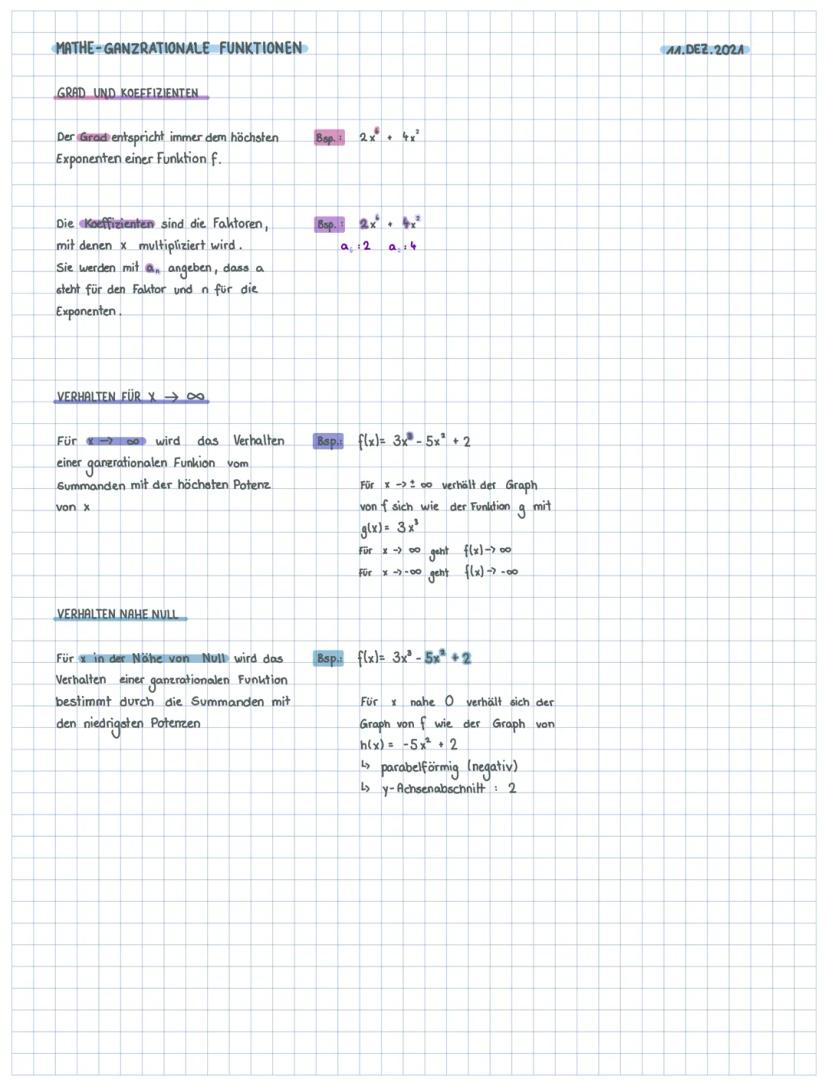 MATHE-GANZRATIONALE FUNKTIONEN
11.DEZ.2021
GRAD UND KOEFFIZIENTEN
Der Grad entspricht immer dem höchsten
Exponenten einer Funktion f.
Bsp.: 2x⁶ + 4x²
Die Koeffizienten sind die Faktoren,
mit denen x multipliziert wird.
Sie werden mit aₙ angeben, dass a
steht für den Faktor und n für die
Exponenten.
Bsp.: 2x⁶ + 4x²
a₆:2 a₂:4
VERHALTEN FÜR X → ∞
Für x → ∞ wird das Verhalten
einer ganzrationalen Funkion vom
Summanden mit der höchsten Potenz
von x
Bsp.: f(x)= 3x³ - 5x² + 2
Für x → ± ∞ verhält der Graph
von f sich wie der Funktion g mit
g(x)= 3x³
Für x → ∞ geht f(x) → ∞
Für x → -∞ geht f(x) → -∞
VERHALTEN NAHE NULL
Für x in der Nähe von Null wird das
Verhalten einer ganzrationalen Funktion
bestimmt durch die Summanden mit
den niedrigsten Potenzen
Bsp.: f(x)= 3x³ - 5x² + 2
Für x nahe 0 verhält sich der
Graph von f wie der Graph von
h(x) = -5x² + 2
↳ parabelförmig (negativ)
↳ y-Achsenabschnitt : 2